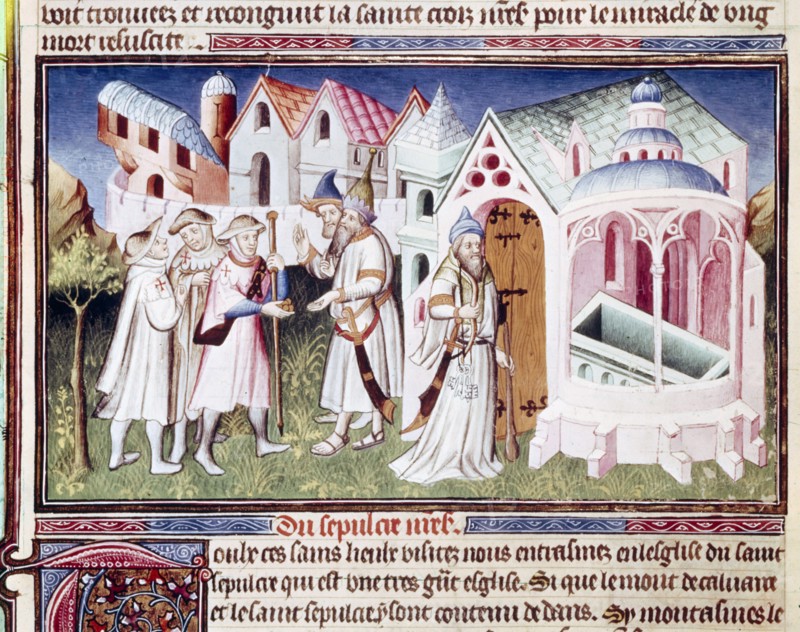 voit trouveez et recongnut la sainte croiz nr̃e pour le miracle de ung
mort resuscite.
Du sepulcre nr̃e.
Toulz ces sains lieulx visitez nous entrasmez en lesglise du saint
sepulcre qui est une tres gñt esglise. Si que le mont de calvaire
et le saint sepulcre y sont contenu dedans. Sy montasmes le